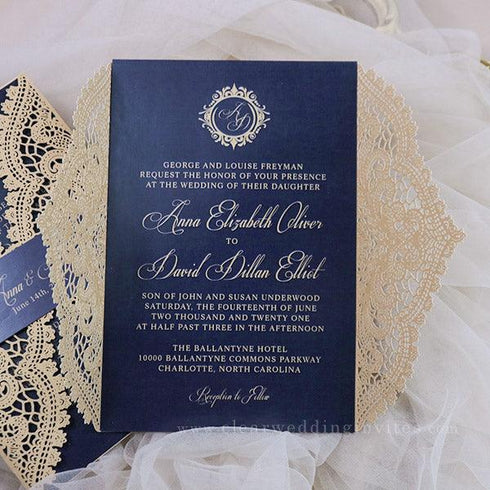 AD
GEORGE AND LOUISE FREYMAN
REQUEST THE HONOR OF YOUR PRESENCE
AT THE WEDDING OF THEIR DAUGHTER
Anna Elizabeth Oliver
TO
David Dillan Elliot
SON OF JOHN AND SUSAN UNDERWOOD
SATURDAY, THE FOURTEENTH OF JUNE
TWO THOUSAND AND TWENTY ONE
AT HALF PAST THREE IN THE AFTERNOON
THE BALLANTYNE HOTEL
10000 BALLANTYNE COMMONS PARKWAY
CHARLOTTE, NORTH CAROLINA
Reception to Follow
Anna &
June 14th,
www.clearweddinginvites.com